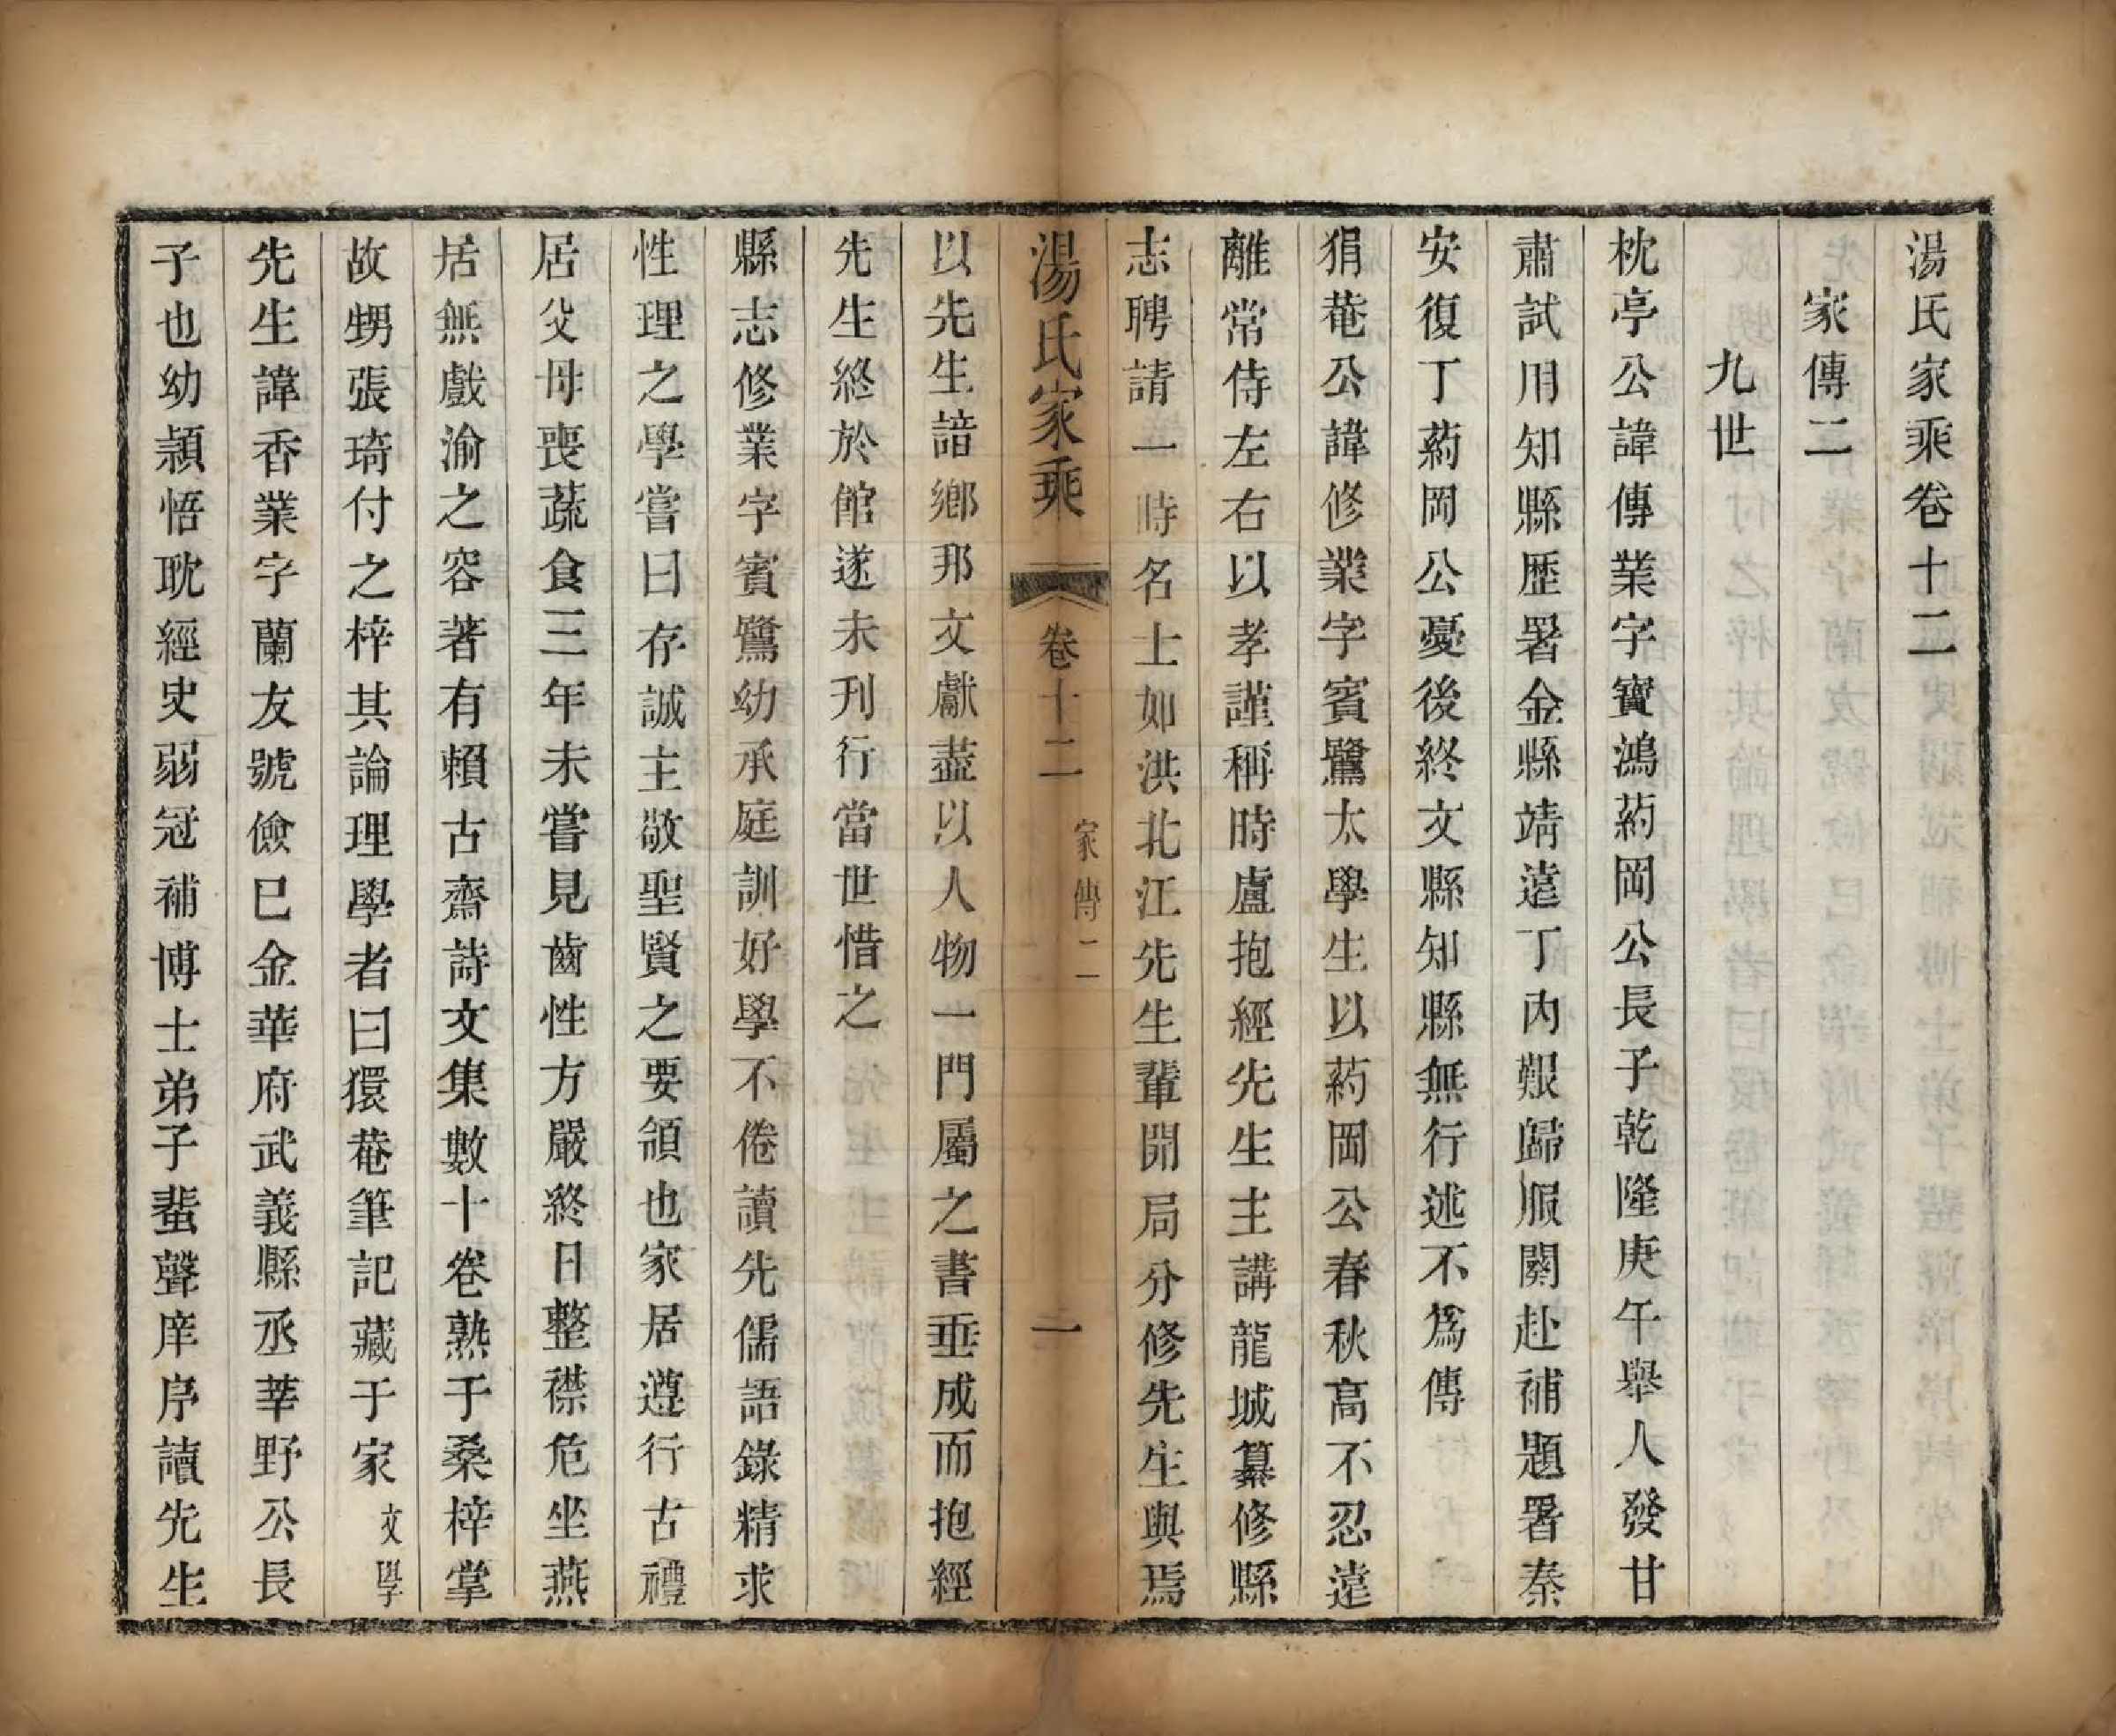 湯氏家乘卷十二
家傳二
九世
枕亭公諱傳業字寶鴻葯岡公長子乾隆庚午舉人發甘
肅試用知縣歷署金縣靖遠丁內艱歸服闋赴補題署秦
安復丁葯岡公憂後終文縣知縣無行述不爲傳
狷菴公諱修業字賓鷺太學生以葯岡公春秋高不忍遠
離常侍左右以孝謹稱時盧抱經先生主講龍城纂修縣
志聘請一時名士如洪北江先生輩開局分修先生與焉
湯氏家乘 卷十二 家傳二 一
以先生諳鄉邦文獻盡以人物一門屬之書垂成而抱經
先生終於館遂未刊行當世惜之
縣志修業字賓鷺幼承庭訓好學不倦讀先儒語錄精求
性理之學嘗曰存誠主敬聖賢之要領也家居遵行古禮
居父母喪蔬食三年未嘗見齒性方嚴終日整襟危坐燕
居無戲渝之容著有賴古齋詩文集數十卷熟于桑梓掌
故甥張琦付之梓其論理學者曰獧菴筆記藏于家 文學
先生諱香業字蘭友號儉巳金華府武義縣丞莘野公長
子也幼顈悟耽經史弱冠補博士弟子蜚聲庠序讀先生